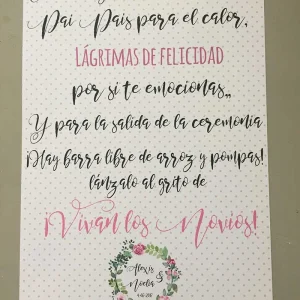 Pai Pais para el calor,
LÁGRIMAS DE FELICIDAD
por si te emocionas,,
Y para la salida de la ceremonia
¡Hay barra libre de arroz y pompas!
lánzalo al grito de
¡Vivan los Novios!
Alexis &
Noelia